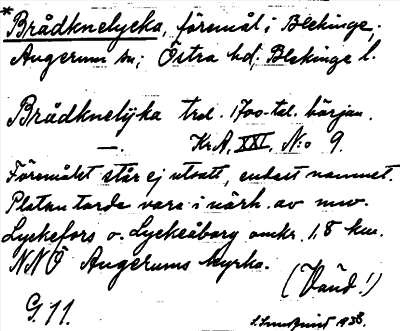 *Brådknelycka, föremål i Blekinge,
Augerum sn; Östra hd; Blekinge l.
Brådknelÿka trol. 1700-tal. början.
—. Kr.A. XXI, N:o 9.
Föremålet står ej utsatt, endast namnet.
Platsen torde vara i närh. av nuv.
Lyckefors o. Lyckeåborg omkr. 1,8 km.
NNÖ Augerums kyrka.
(Vänd!)
G. 11.
1938.